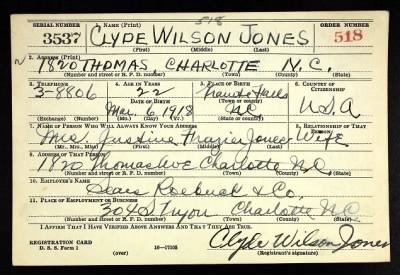 518
SERIAL NUMBER 1. NAME (Print) ORDER NUMBER
3537 CLYDE WILSON JONES 518
(First) (Middle) (Last)
2. ADDRESS (Print)
1820 THOMAS, CHARLOTTE N.C.
(Number and street or R. F. D. number) (Town) (County) (State)
3. TELEPHONE 4. AGE IN YEARS 5. PLACE OF BIRTH 6. COUNTRY OF CITIZENSHIP
3-8806 22 Granite Falls
DATE OF BIRTH (Town or county)
Mar. 6 1918 NC U.S.A
(Exchange) (Number) (Mo.) (Day) (Yr.) (State or country)
7. NAME OF PERSON WHO WILL ALWAYS KNOW YOUR ADDRESS 8. RELATIONSHIP OF THAT PERSON
Mrs. Justine Frazier Jones Wife
(Mr., Mrs., Miss) (First) (Middle) (Last)
9. ADDRESS OF THAT PERSON
1820 Thomas Ave Charlotte N.C.
(Number and street or R. F. D. number) (Town) (County) (State)
10. EMPLOYER'S NAME
Sears Roebuck & Co.
11. PLACE OF EMPLOYMENT OR BUSINESS
304 S Tryon Charlotte N.C.
(Number and street or R. F. D. number) (Town) (County) (State)
I AFFIRM THAT I HAVE VERIFIED ABOVE ANSWERS AND THAT THEY ARE TRUE.
REGISTRATION CARD
D. S. S. Form 1 (over) 16—17105 Clyde Wilson Jones
(Registrant's signature)